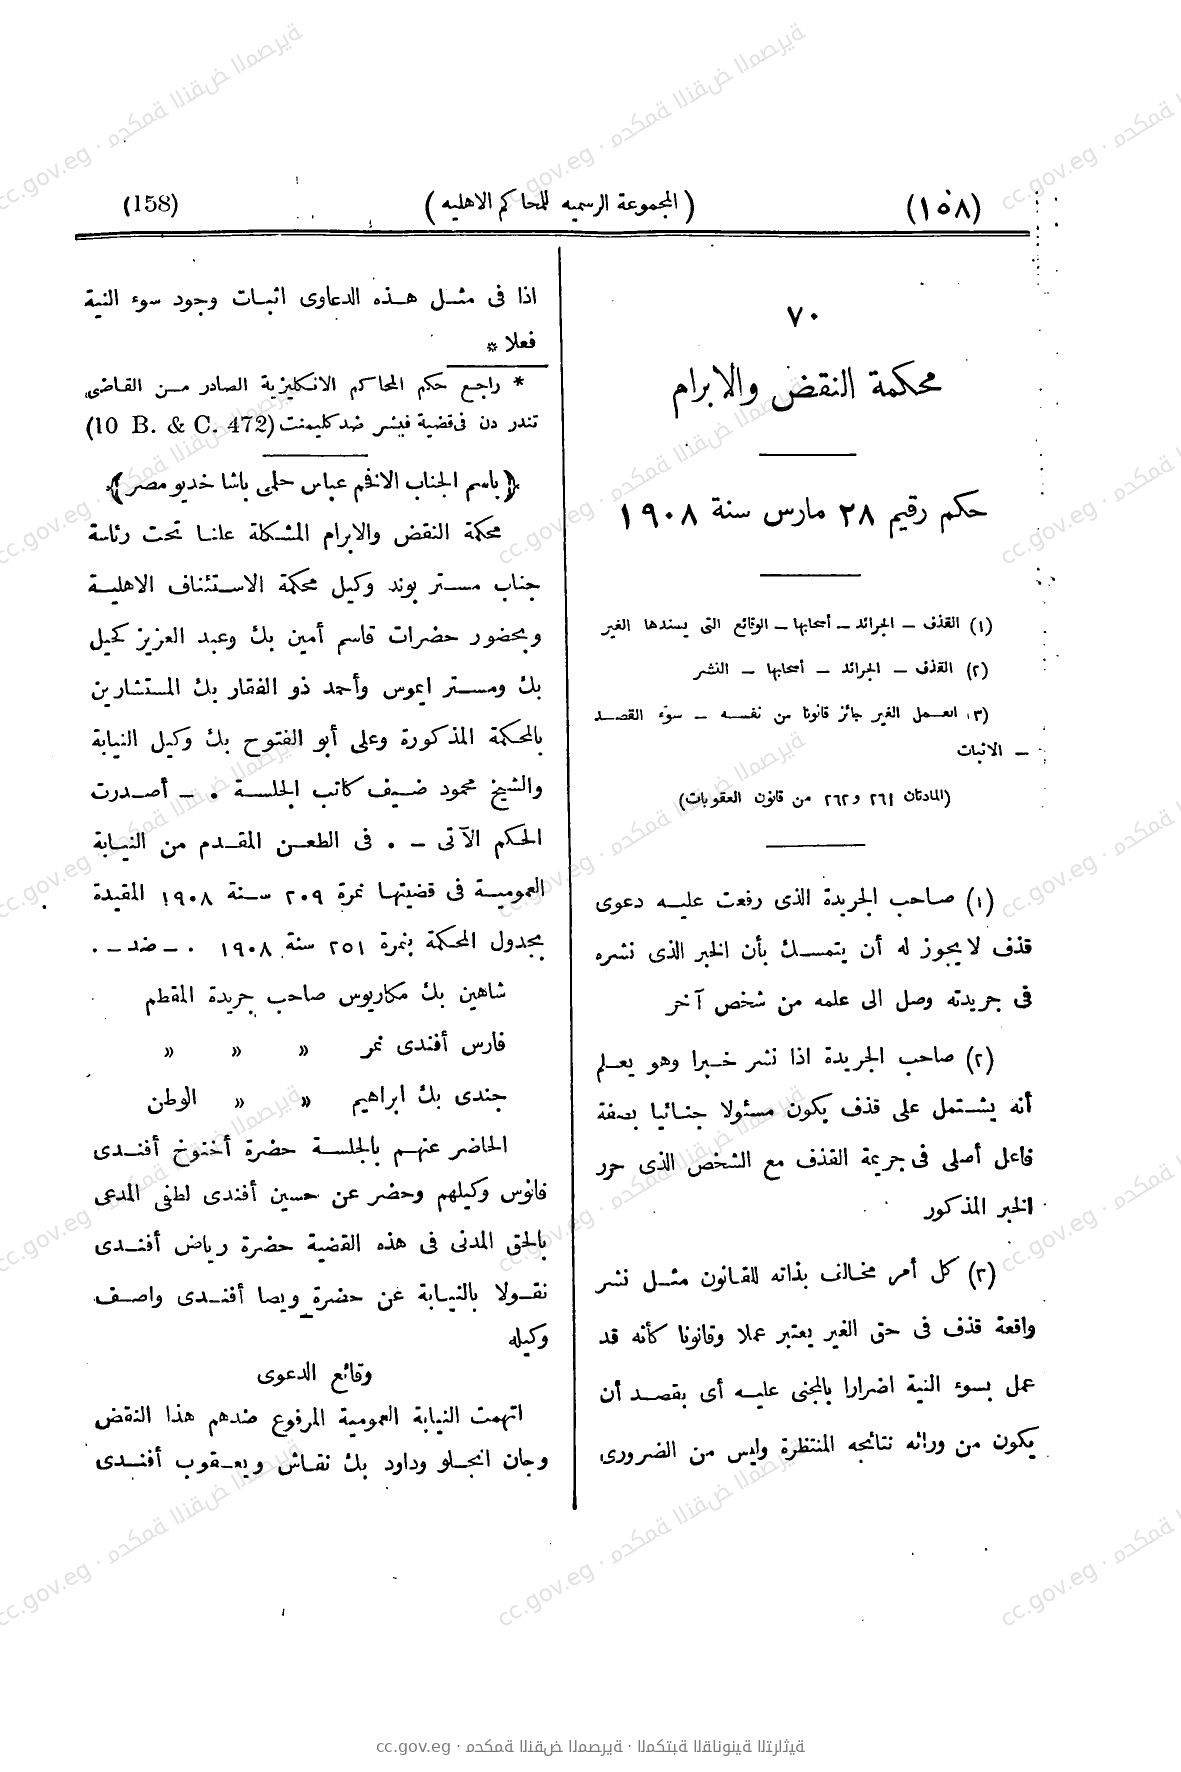 (١٥٨)
(المجموعة الرسميه للمحاكم الاهليه)
(158)
٧٠
محكمة النقض والابرام
حكم رقيم ٢٨ مارس سنة ١٩٠٨
(١) القذف – الجرائد – أصحابها – الوقائع التى يسندها الغير
(٢) القذف – الجرائد – أصحابها – النشر
(٣) العمل الغير جائز قانونا من نفسه – سوء القصد
– الاثبات
(المادتان ٢٦١ و٢٦٢ من قانون العقوبات)
(١) صاحب الجريدة الذى رفعت عليه دعوى
قذف لا يجوز له أن يتمسك بأن الخبر الذى نشره
فى جريدته وصل الى علمه من شخص آخر
(٢) صاحب الجريدة اذا نشر خبرا وهو يعلم
أنه يشتمل على قذف يكون مسئولا جنائيا بصفة
فاعل أصلى فى جريمة القذف مع الشخص الذى حرر
الخبر المذكور
(٣) كل أمر مخالف بذاته للقانون مثل نشر
واقعة قذف فى حق الغير يعتبر عملا وقانونا كأنه قد
عمل بسوء النية اضرارا بالمجنى عليه أى بقصد أن
يكون من ورائه نتائجه المنتظرة وليس من الضرورى
اذا فى مثل هذه الدعاوى اثبات وجود سوء النية
فعلا *
* راجع حكم المحاكم الانكليزية الصادر من القاضى
تندر دن فى قضية فيشر ضد كليمنت (10 B. & C. 472)
﴿باسم الجناب الافخم عباس حلمى باشا خديو مصر﴾
محكمة النقض والابرام المشكلة علنا تحت رئاسة
جناب مستر بوند وكيل محكمة الاستئناف الاهلية
وبحضور حضرات قاسم أمين بك وعبد العزيز كحيل
بك ومستر ايموس وأحمد ذو الفقار بك المستشارين
بالمحكمة المذكورة وعلى أبو الفتوح بك وكيل النيابة
والشيخ محمود ضيف كاتب الجلسة . – أصدرت
الحكم الآتى – . فى الطعن المقدم من النيابة
العمومية فى قضيتها نمرة ٢٠٩ سنة ١٩٠٨ المقيدة
بجدول المحكمة بنمرة ٢٥١ سنة ١٩٠٨ . – ضد – .
شاهين بك مكاريوس صاحب جريدة المقطم
فارس أفندى نمر » » »
جندى بك ابراهيم » » الوطن
الحاضر عنهم بالجلسة حضرة أخنوخ أفندى
فانوس وكيلهم وحضر عن حسين أفندى لطفى المدعى
بالحق المدنى فى هذه القضية حضرة رياض أفندى
نقولا بالنيابة عن حضرة ويصا أفندى واصف
وكيله
وقائع الدعوى
اتهمت النيابة العمومية المرفوع ضدهم هذا النقض
وجان انجلو وداود بك نقاش ويعقوب أفندى
cc.gov.eg · محكمة النقض المصرية · المكتبة القانونية التراثية